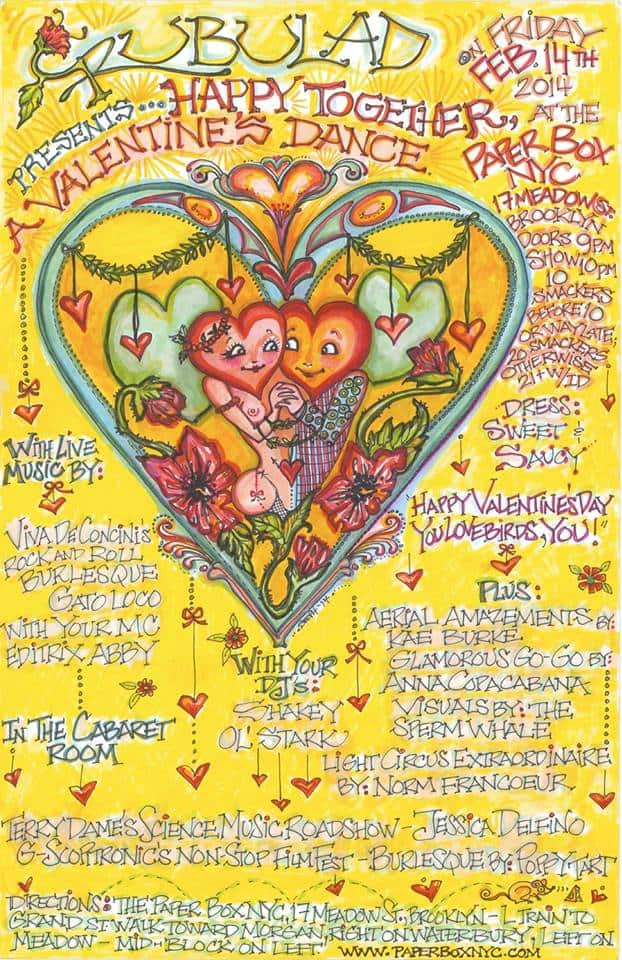 RUBULAD
PRESENTS... HAPPY TOGETHER,
A VALENTINE'S DANCE
ON FRIDAY
FEB. 14TH
2014
AT THE
PAPER BOX
NYC
17 MEADOW ST.
BROOKLYN
DOORS 9PM
SHOW 10PM
10
SMACKERS
BEFORE 10
OR WAY LATE,
20 SMACKERS
OTHERWISE
21+ W/ID
DRESS:
SWEET &
SAUCY
"HAPPY VALENTINE'S DAY
YOU LOVEBIRDS, YOU!"
WITH LIVE
MUSIC BY:
VIVA DECONCINI'S
ROCK AND ROLL
BURLESQUE
GATO LOCO
WITH YOUR MC
EDITRIX ABBY
IN THE CABARET
ROOM
WITH YOUR
DJ'S:
SHAKEY
OL' STARK
PLUS:
AERIAL AMAZEMENTS BY:
KAE BURKE
GLAMOROUS GO-GO BY:
ANNA COPACABANA
VISUALS BY: THE
SPERM WHALE
LIGHT CIRCUS EXTRAORDINAIRE
BY: NORM FRANCOEUR
TERRY DAME'S SCIENCE MUSIC ROADSHOW - JESSICA DELFINO
G-SCOPTRONIC'S NON-STOP FILM FEST - BURLESQUE BY: POPPY TART
DIRECTIONS: THE PAPER BOX NYC, 17 MEADOW ST., BROOKLYN - L TRAIN TO
GRAND ST WALK TOWARD MORGAN, RIGHT ON WATERBURY, LEFT ON
MEADOW - MID-"BLOCK ON LEFT." WWW.PAPERBOXNYC.COM